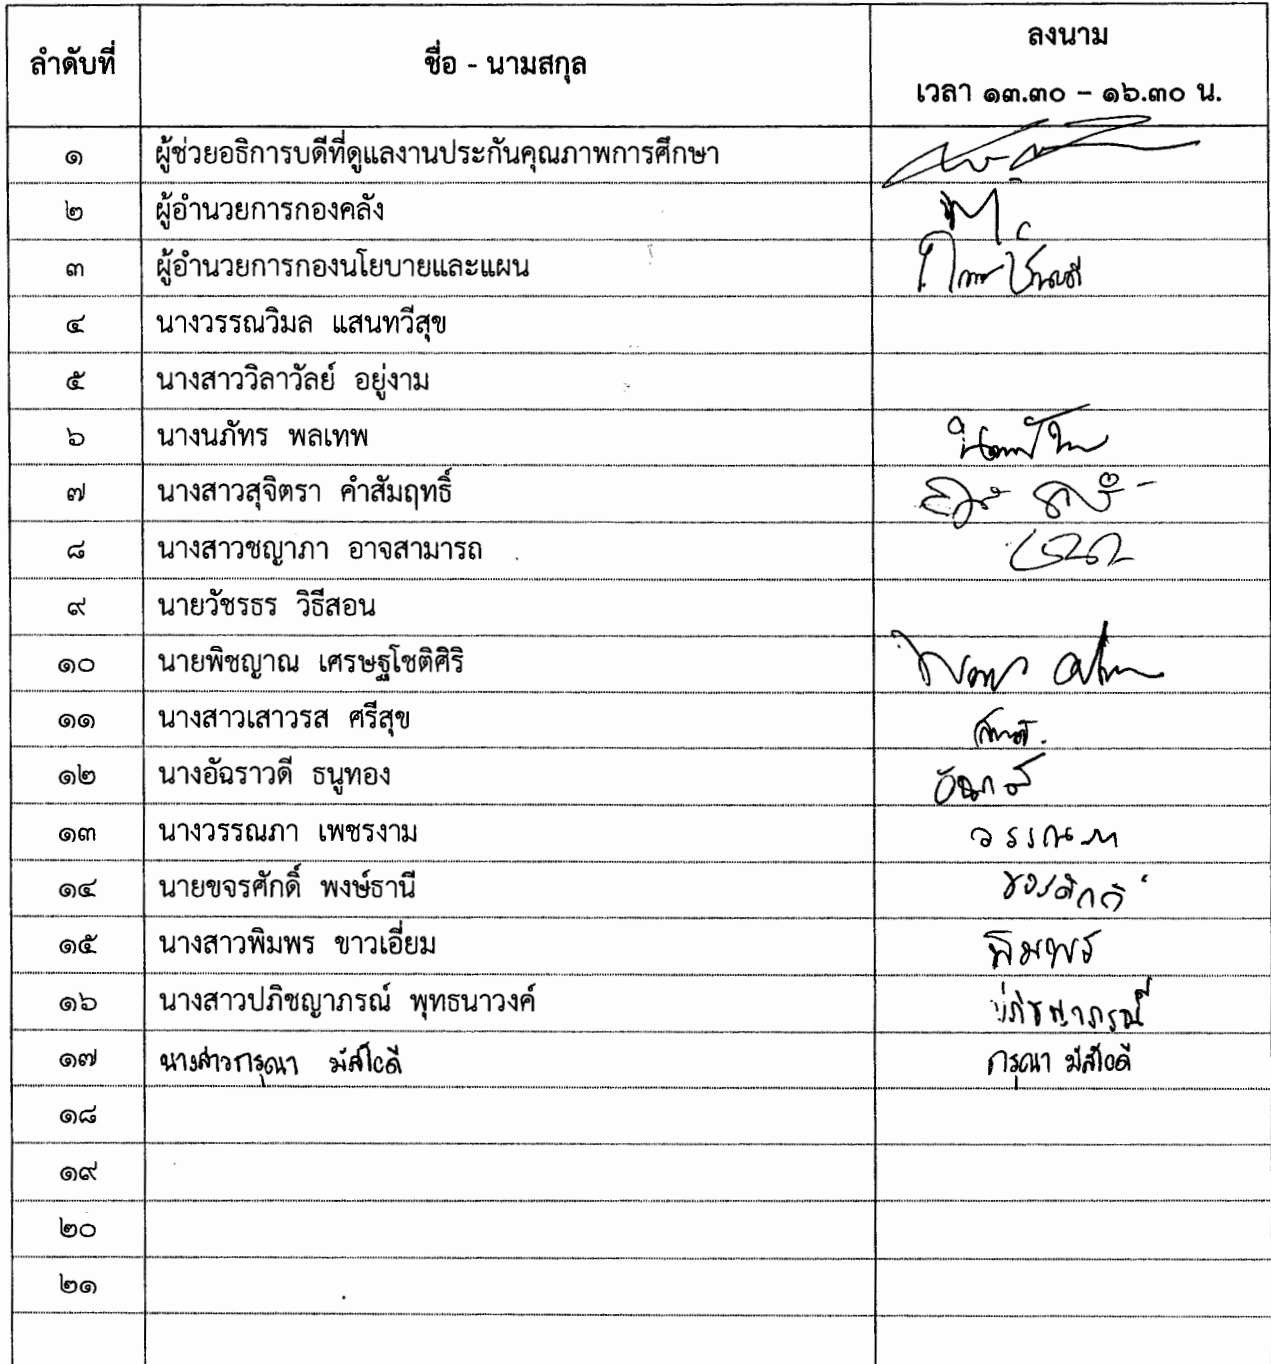 ลำดับที่ ชื่อ - นามสกุล ลงนาม
เวลา ๑๓.๓๐ – ๑๖.๓๐ น.
๑ ผู้ช่วยอธิการบดีที่ดูแลงานประกันคุณภาพการศึกษา
๒ ผู้อำนวยการกองคลัง
๓ ผู้อำนวยการกองนโยบายและแผน
๔ นางวรรณวิมล แสนทวีสุข
๕ นางสาววิลาวัลย์ อยู่งาม
๖ นางนภัทร พลเทพ
๗ นางสาวสุจิตรา คำสัมฤทธิ์
๘ นางสาวชญาภา อาจสามารถ
๙ นายวัชรธร วิธีสอน
๑๐ นายพิชญาณ เศรษฐโชติศิริ
๑๑ นางสาวเสาวรส ศรีสุข
๑๒ นางอัฉราวดี ธนูทอง
๑๓ นางวรรณภา เพชรงาม วรรณภา
๑๔ นายขจรศักดิ์ พงษ์ธานี ขจรศักดิ์
๑๕ นางสาวพิมพร ขาวเอี่ยม พิมพร
๑๖ นางสาวปภิชญาภรณ์ พุทธนาวงค์ ปภิชญาภรณ์
๑๗ นางสาวกรุณา กรุณา
๑๘
๑๙
๒๐
๒๑